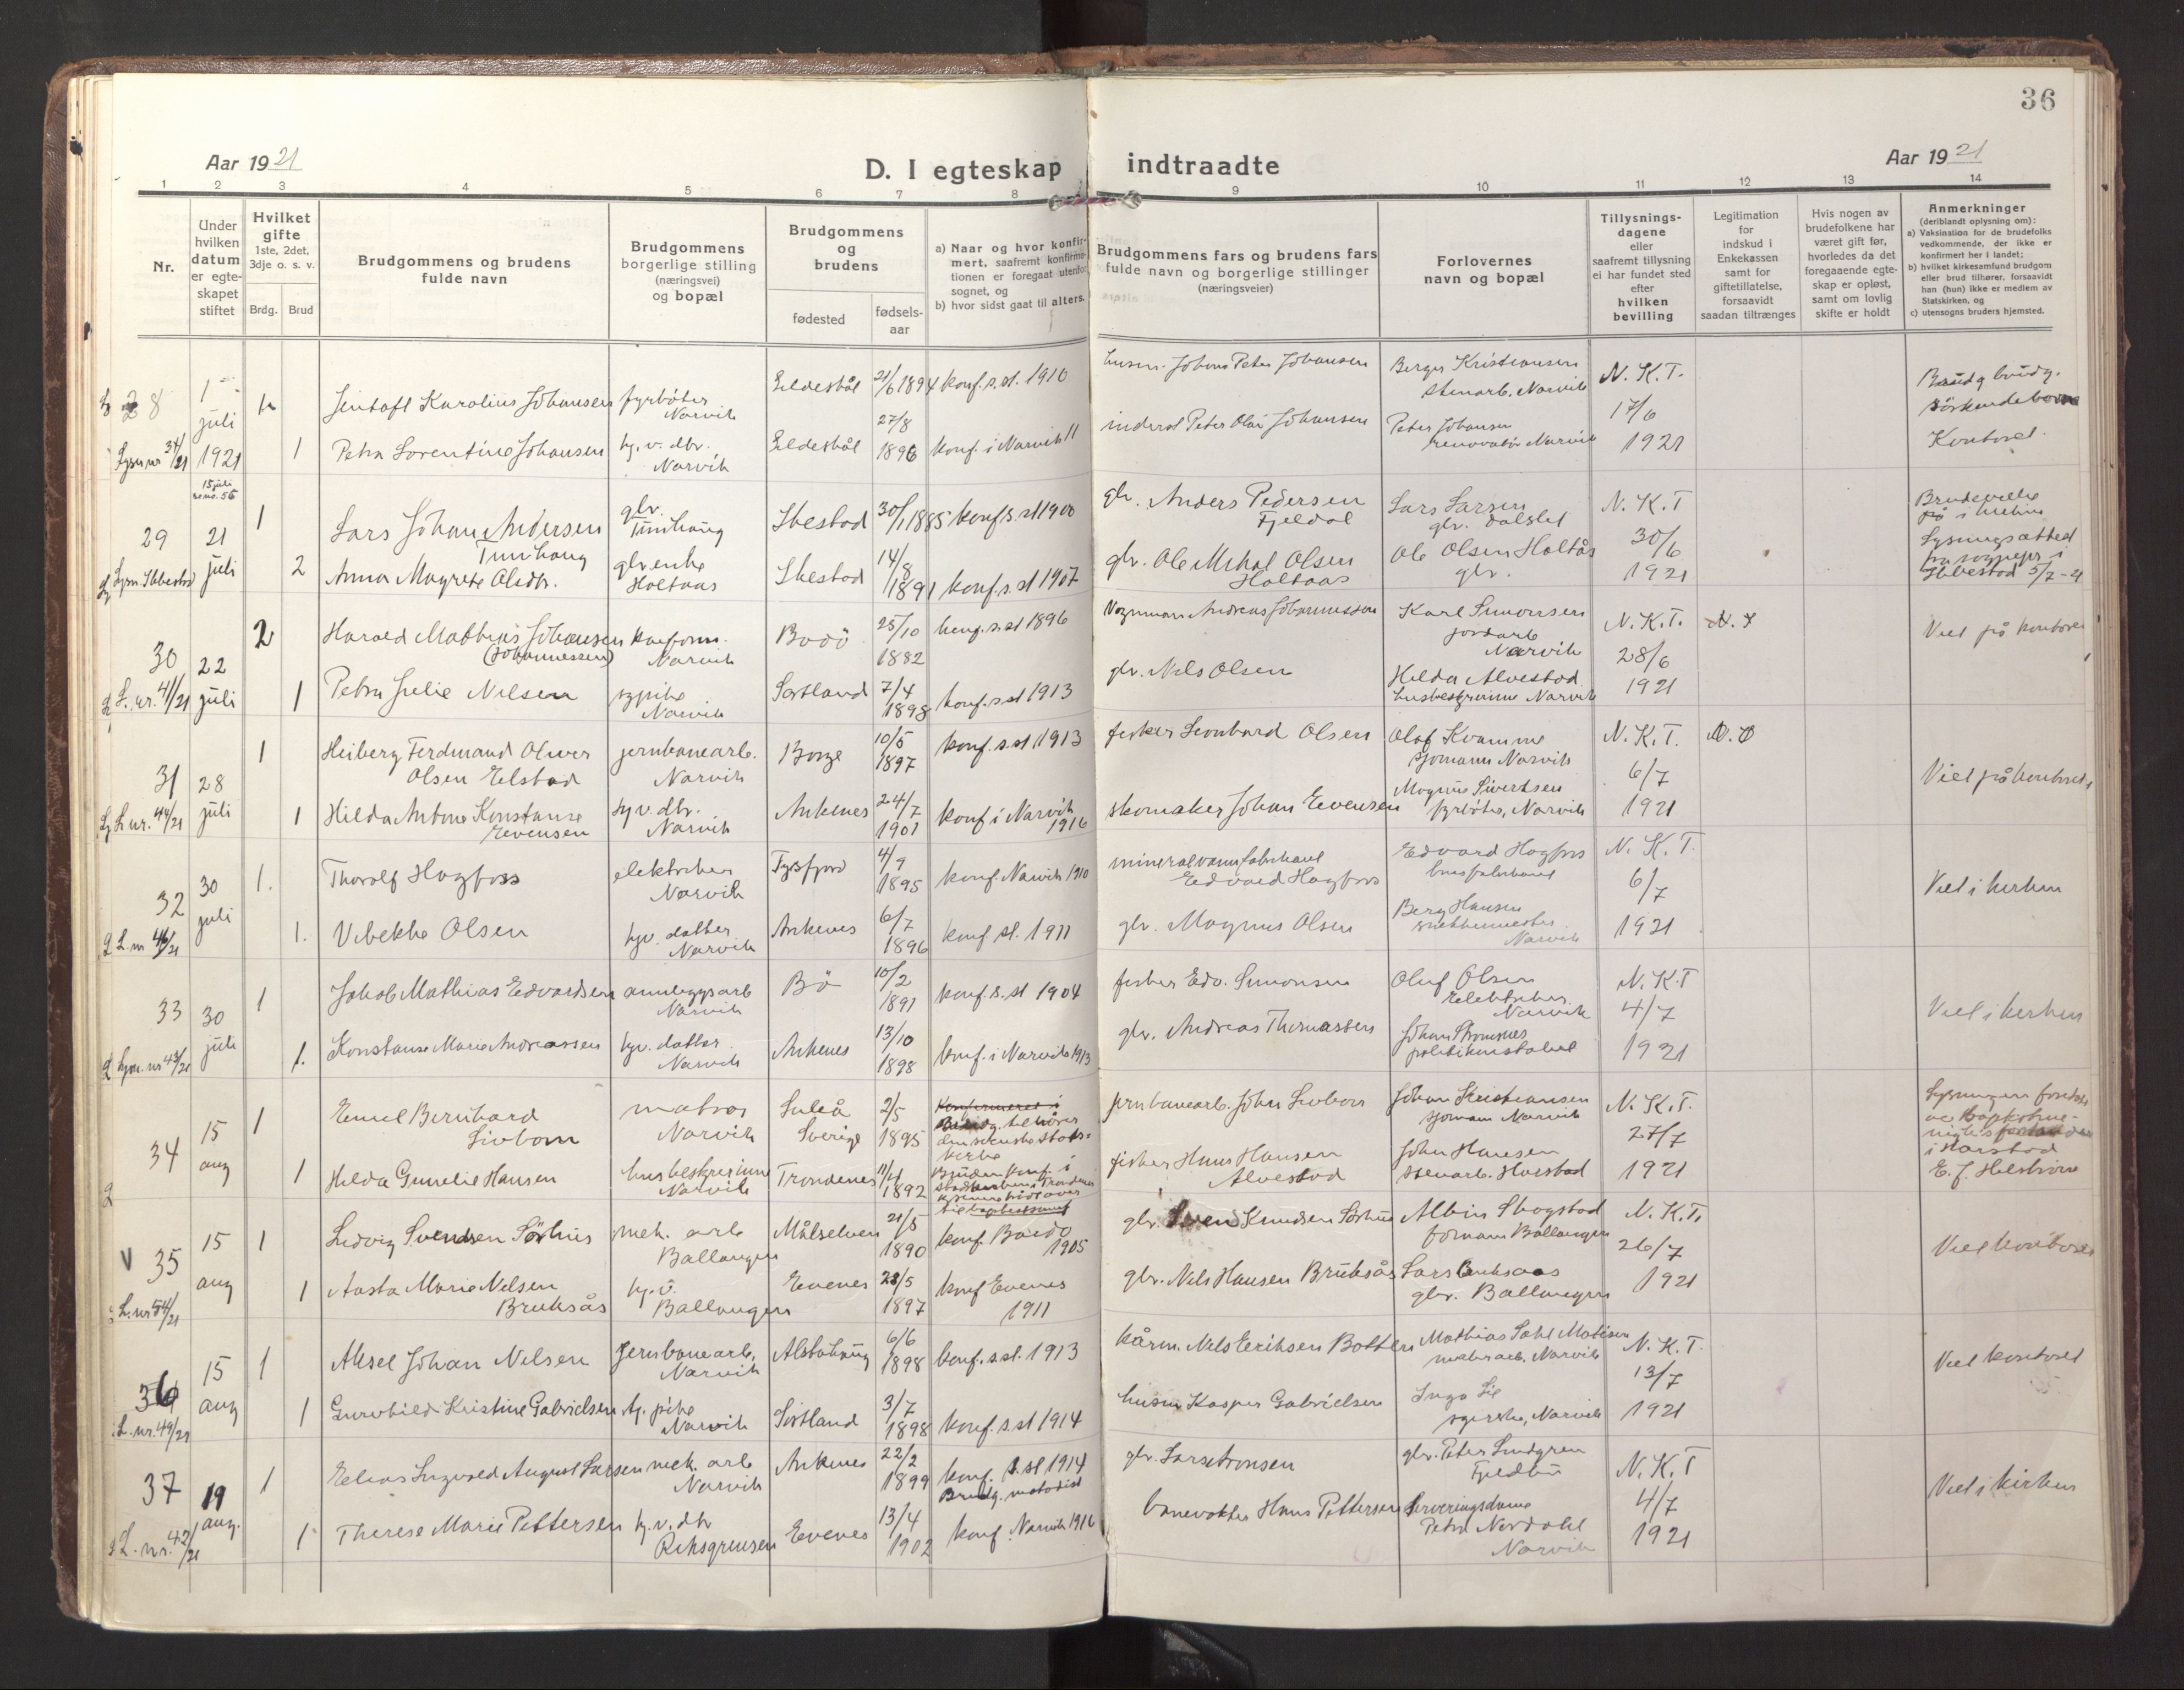 36
Aar 1921
D. I egteskap
indtraadte
Aar 1921
1 2 3 4 5 6 7 8 9 10 11 12 13 14
Nr.
Under hvilken datum er egte-skapet stiftet
Hvilket gifte
1ste, 2det, 3dje o. s. v.
Brdg. Brud
Brudgommens og brudens
fulde navn
Brudgommens
borgerlige stilling
(næringsvei)
og bopæl
Brudgommens
og
brudens
fødested
fødsels-
aar
a) Naar og hvor konfir-
mert, saafremt konfirma-
tionen er foregaat utenfor
sognet, og
b) hvor sidst gaat til alters.
Brudgommens fars og brudens fars
fulde navn og borgerlige stillinger
(næringsveier)
Forlovernes
navn og bopæl
Tillysnings-
dagene
eller
saafremt tillysning
ei har fundet sted
efter
hvilken
bevilling
Legitimation
for
indskud i
Enkekassen
samt for
giftetillatelse,
forsaavidt
saadan tiltrænges
Hvis nogen av
brudefolkene har
været gift før,
hvorledes da det
foregaaende egte-
skap er opløst,
samt om lovlig
skifte er holdt
Anmerkninger
(deriblandt oplysning om):
a) Vaksination for de brudefolks
vedkommende, der ikke er
konfirmert her i landet;
b) hvilket kirkesamfund brudgom
eller brud tilhører, forsaavidt
han (hun) ikke er medlem av
Statskirken, og
c) utensogns bruders hjemsted.
28 1 juli 1921
Jentoft Karolius Johansen fyrbøter Narvik Eldeshål 21/6 1894 konf. s. st. 1910
Johans Peter Johansen
Berger Kristiansen stenarb. Narvik
N. K. T. 17/6 1921
1 Petra Lorentine Johansen hj. v. dtr. Narvik Eldeshål 27/8 1896 konf. i Narvik 11
inderst Peter Olai Johansen
Peter Johansen Narvik
Kontoret
29 21 juli
1 Lars Johan Andersen glr. Ibestad 30/1 1885 konf. s. st 1900
glr. Anders Pedersen Fjeldal
Lars Larsen glr.
N. K. T 30/6 1921
2 Anna Magrete Olsdtr. glr. enke Holtaas Ibestad 14/8 1891 konf. s. st 1907
glr. Ole Mikal Olsen Holtaas
Ole Olsen Holtås glr.
Ibbestad 5/7-21
30 22 juli
L. nr. 41/21
2 Harald Mathias Johansen (Johannessen) Narvik Bodö 25/10 1882 konf. s. st 1896
Vognmann Andreas Johannessen
Karl Simonsen jordarb Narvik
N. K. T. 28/6 1921
Viet på kontoret
1 Petra Julie Nilsen sypike Narvik Sortland 7/4 1898 konf. s. st 1913
glr. Nils Olsen
Hilda Alvestad husbestyrinne Narvik
31 28 juli
L nr. 44/21
1 Heiberg Ferdinand Oliver Olsen Elstad jernbanearb. Narvik Borge 10/5 1897 konf. s. st 1913
fisker Leonhard Olsen
Olaf Kvamme sjømann Narvik
N. K. T. 6/7 1921
Viet på kontoret
1 Hilda Antone Konstanse Evensen hj. v. dtr. Narvik Ankenes 24/7 1901 konf i Narvik 1916
skomaker Johan Evensen
Magnus Sivertsen fyrbøter, Narvik
32 30 juli
L. nr 46/21
1. Thorolf Hagfoss elektriker Narvik Tysfjord 4/9 1895 konf. Narvik 1910
mineralvannfabrikant Edvard Hagfoss
Edvard Hagfoss
N. K. T. 6/7 1921
Viet i kirken
1. Vibekke Olsen hjv. datter Narvik Ankenes 6/7 1896 konf st. 1911
glr. Magnus Olsen
Berg Hansen Narvik
33 30 juli
Lysn. nr 43/21
1 Jakob Mathias Edvardsen anleggsarb Narvik Bö 10/2 1891 konf. s. st 1904
fisker Edv. Simonsen
Oluf Olsen Elektriker Narvik
N. K. T 4/7 1921
Viet i kirken
1. Konstanse Marie Andreassen hjv. datter Narvik Ankenes 13/10 1898 konf. i Narvik 1913
glr. Andreas Thomassen
Johan Thomsnes politikonstabel
34 15 aug
1 Emil Bernhard Livbom matros Narvik Luleå Sverige 2/5 1895 den svenske stats-kirke
jernbanearb. John Livbom
Johan Kristiansen sjømann Narvik
N. K. T. 27/7 1921
1 Hilda Gunelie Hansen husbestyrinne Narvik Trondenes 11/4 1892
fisker Hans Hansen Alvestad
John Hansen stenarb. Harstad
i Harstad
35 15 aug
L. nr 54/21
1 Ludvig Svendsen Sörhus mek. arb Ballangen Målselven 21/5 1890 konf. Bardo 1905
glr. Sven Knudsen Sörhus
Albin Skogstad formann Ballangen
N. K. T. 26/7 1921
Viet kontoret
1 Aasta Marie Nilsen Bruksås hj. v. Ballangen Evenes 28/5 1897 konf Evenes 1911
glr. Nils Hansen Bruksås
Lars Bruksaas glr. Ballangen
36 15 aug
L. nr. 49/21
1 Aksel Johan Nilsen jernbanearb. Narvik Alstahaug 6/6 1898 konf. s. st. 1913
Nils Eriksen Botten
Mathias Dahl Matisen Narvik
N. K. T. 13/7 1921
Viet kontoret
1 Gunvhild Kristine Gabrielsen hj. pike Narvik Sortland 3/7 1898 konf. s. st 1914
husm Kasper Gabrielsen
Inga Lie Narvik
37 19 aug.
L. nr. 42/21
1 Elias Ingvald August Larsen mek. arb Narvik Ankenes 22/2 1899 konf. s. st 1914 Brudg. metodist
glr.
glr. Peter Lindgren
N. K. T 4/7 1921
Viet i kirken
1 Therese Marie Pettersen hj. v. dtr Riksgrensen Evenes 13/4 1902 konf. Narvik 1916
banevokter Hans Pettersen
Serveringsdame Petra Nordahl Narvik